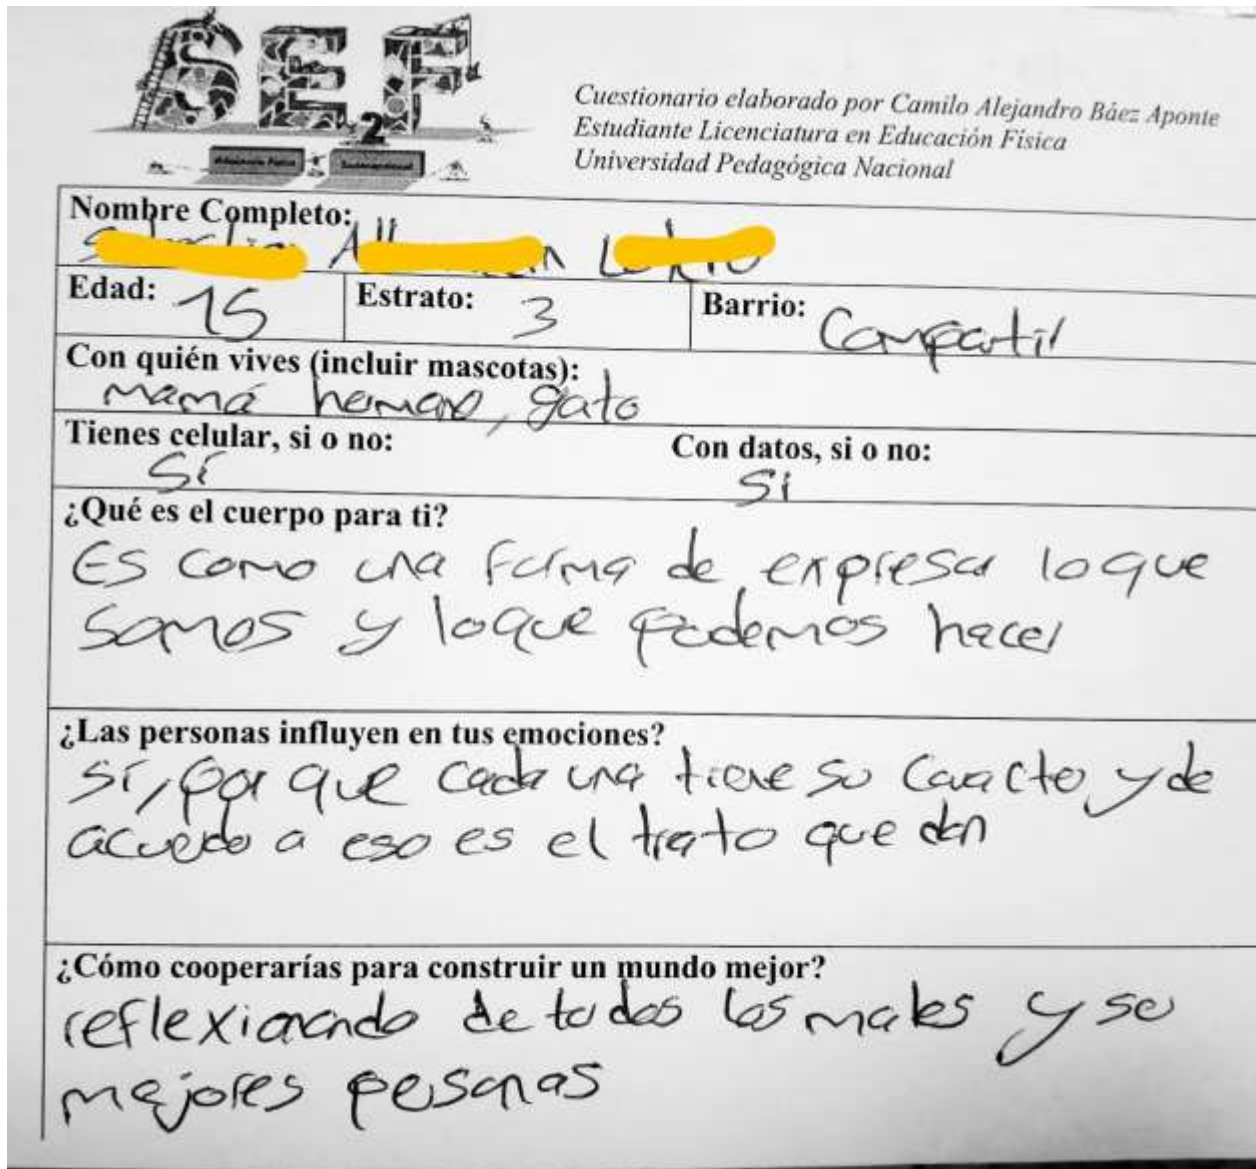 SEF
2
Educación Física
Cuestionario elaborado por Camilo Alejandro Báez Aponte
Estudiante Licenciatura en Educación Física
Universidad Pedagógica Nacional
Nombre Completo:
Edad: 15 Estrato: 3 Barrio: Compartir
Con quién vives (incluir mascotas):
mamá hermano, gato
Tienes celular, si o no: Con datos, si o no:
Sí Si
¿Qué es el cuerpo para ti?
Es como una forma de expresar lo que
somos y lo que podemos hacer
¿Las personas influyen en tus emociones?
sí, por que cada una tiene su caracter y de
acuerdo a eso es el trato que dan
¿Cómo cooperarías para construir un mundo mejor?
reflexionando de todos los males y ser
mejores personas